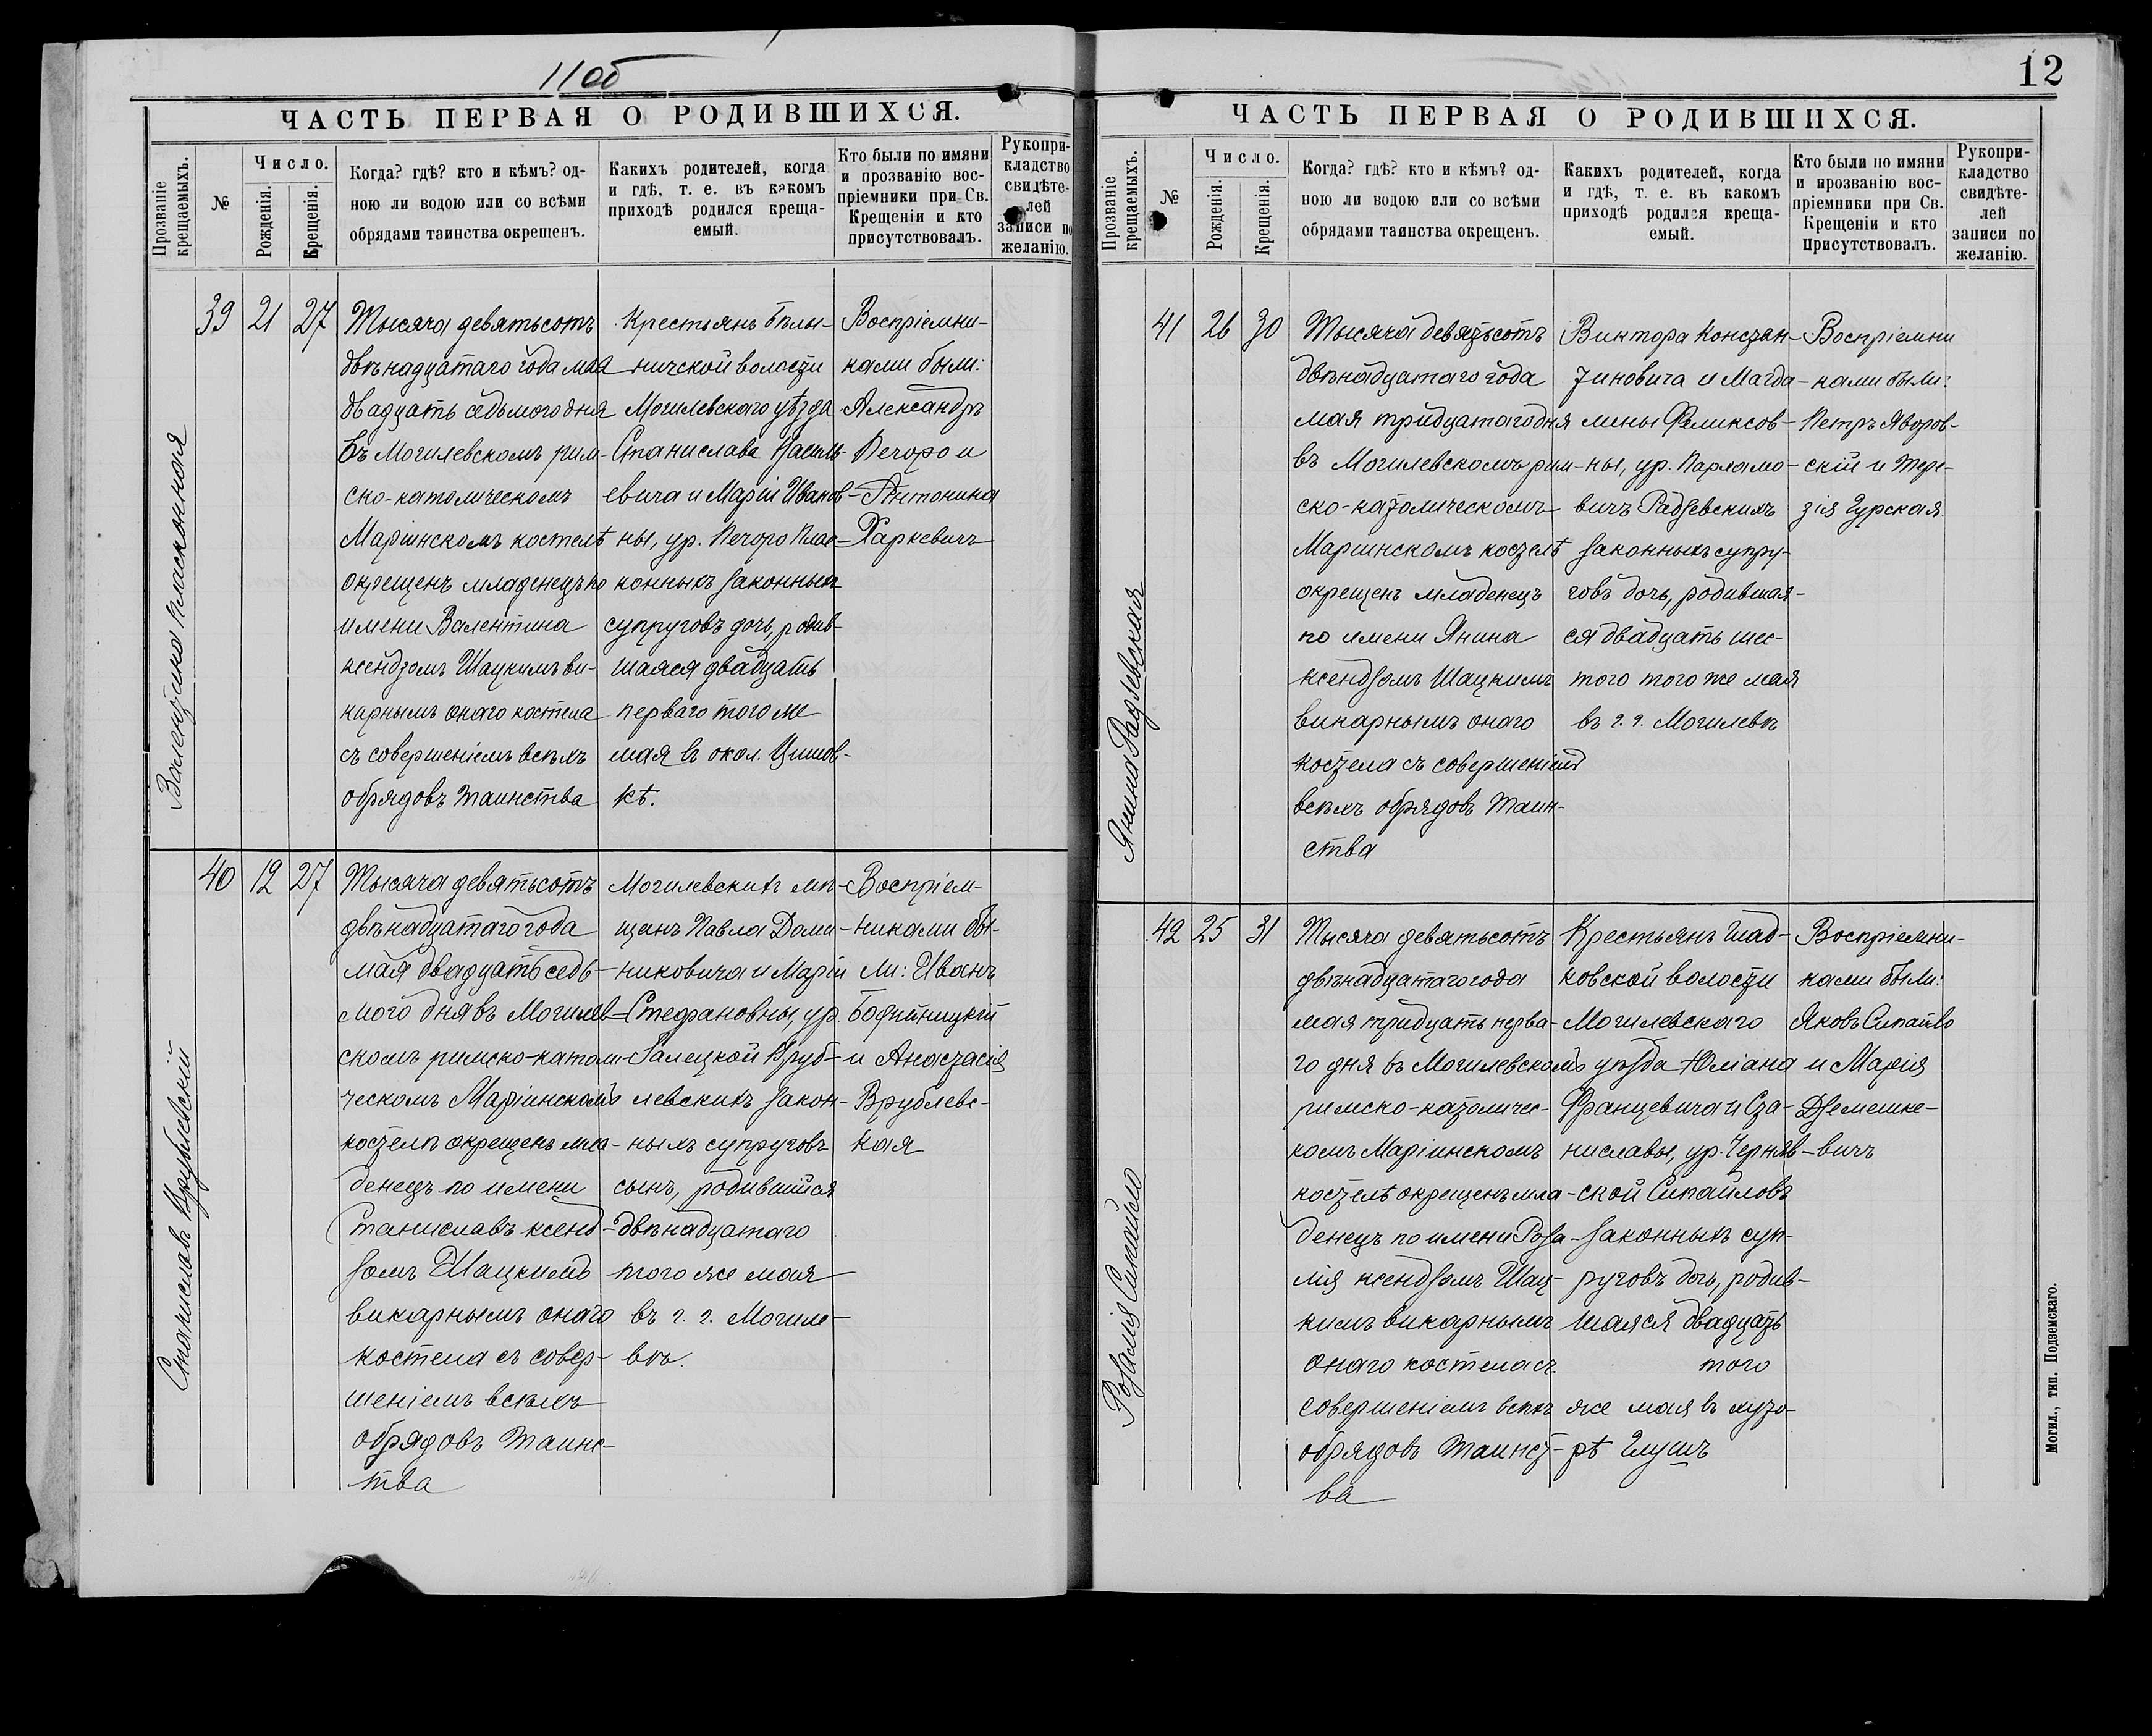 11об
ЧАСТЬ ПЕРВАЯ О РОДИВШИХСЯ.
Прозваніе крещаемыхъ.
№
Число.
Рожденія.
Крещенія.
Когда? гдѣ? кто и кѣмъ? од-
ною ли водою или со всѣми
обрядами таинства окрещенъ.
Какихъ родителей, когда
и гдѣ, т. е. въ какомъ
приходѣ родился креща-
емый.
Кто были по имяни
и прозванію вос-
пріемники при Св.
Крещеніи и кто
присутствовалъ.
Рукопри-
кладство
свидѣте-
лей
записи по
желанію.
Валентина Пласконная
39
21
27
Тысяча девятьсотъ
двѣнадцатаго года мая
двадцать седьмого дня
въ Могилевскомъ рим-
ско-католическомъ
Маріинскомъ костелѣ
окрещенъ младенецъ по
имени Валентина
ксендзомъ Шацкимъ ви-
карнымъ онаго костела
съ совершеніемъ всѣхъ
обрядовъ таинства
Крестьянъ Бѣлы-
ничской волости
Могилевскаго уѣзда
Станислава Василь-
евича и Маріи Иванов-
ны, ур. Печоро Плас-
конныхъ законныхъ
супруговъ дочь, родив-
шаяся двадцать
перваго того же
мая въ окол. Цишов-
кѣ.
Воспріемни-
ками были:
Александръ
Печоро и
Антонина
Харкевичъ
Станиславъ Врублевскій
40
12
27
Тысяча девятьсотъ
двѣнадцатаго года
мая двадцать седь-
мого дня въ Могилев-
скомъ римско-католи-
ческомъ Маріинскомъ
костелѣ окрещенъ мла-
денецъ по имени
Станиславъ ксенд-
зомъ Шацкимъ
викарнымъ онаго
костела съ совер-
шеніемъ всѣхъ
обрядовъ таинс-
тва
Могилевскихъ мѣ-
щанъ Павла Доми-
никовича и Маріи
Стефановны, ур.
Залецкой Вруб-
левскихъ закон-
ныхъ супруговъ
сынъ, родившійся
двѣнадцатаго
того же мая
въ г. г. Могиле-
вѣ.
Воспріем-
никами бы-
ли: Иванъ
и Анастасія
Врублевс-
кая
12
ЧАСТЬ ПЕРВАЯ О РОДИВШИХСЯ.
Прозваніе крещаемыхъ.
№
Число.
Рожденія.
Крещенія.
Когда? гдѣ? кто и кѣмъ? од-
ною ли водою или со всѣми
обрядами таинства окрещенъ.
Какихъ родителей, когда
и гдѣ, т. е. въ какомъ
приходѣ родился креща-
емый.
Кто были по имяни
и прозванію вос-
пріемники при Св.
Крещеніи и кто
присутствовалъ.
Рукопри-
кладство
свидѣте-
лей
записи по
желанію.
Янина Радзевская
41
26
30
Тысяча девятьсотъ
двѣнадцатаго года
мая тридцатаго дня
въ Могилевскомъ рим-
ско-католическомъ
Маріинскомъ костелѣ
окрещенъ младенецъ
по имени Янина
ксендзомъ Шацкимъ
викарнымъ онаго
костела съ совершеніемъ
всѣхъ обрядовъ таин-
ства
Виктора Констан-
тиновича и Магда-
лины Феликсов-
ны, ур. Парламо-
вичъ Радзевскихъ
законныхъ супру-
говъ дочь, родившая-
ся двадцать шес-
того того же мая
въ г. г. Могилевѣ
Воспріемни
ками были:
Петръ Яворов-
скій и Тере-
зія Гурская
Розалія Сипайло
42
25
31
Тысяча девятьсотъ
двѣнадцатаго года
мая тридцать перва-
го дня въ Могилевскомъ
римско-католичес-
комъ Маріинскомъ
костелѣ окрещенъ мла-
денецъ по имени Роза-
лія ксендзомъ Шац-
кимъ викарнымъ
онаго костела съ
совершеніемъ всѣхъ
обрядовъ таинст-
ва
Крестьянъ Шад-
ковской волости
Могилевскаго
уѣзда Юліана
Францевича и Ста-
ниславы, ур. Черняв-
ской Сипайловъ
законныхъ суп-
руговъ дочь, родив-
шаяся двадцать
того
же мая въ хуто-
рѣ Глушъ
Воспріемни-
ками были:
Яковъ Сипайло
и Марія
Дземешке-
вичъ
Могил., тип. Подземскаго.